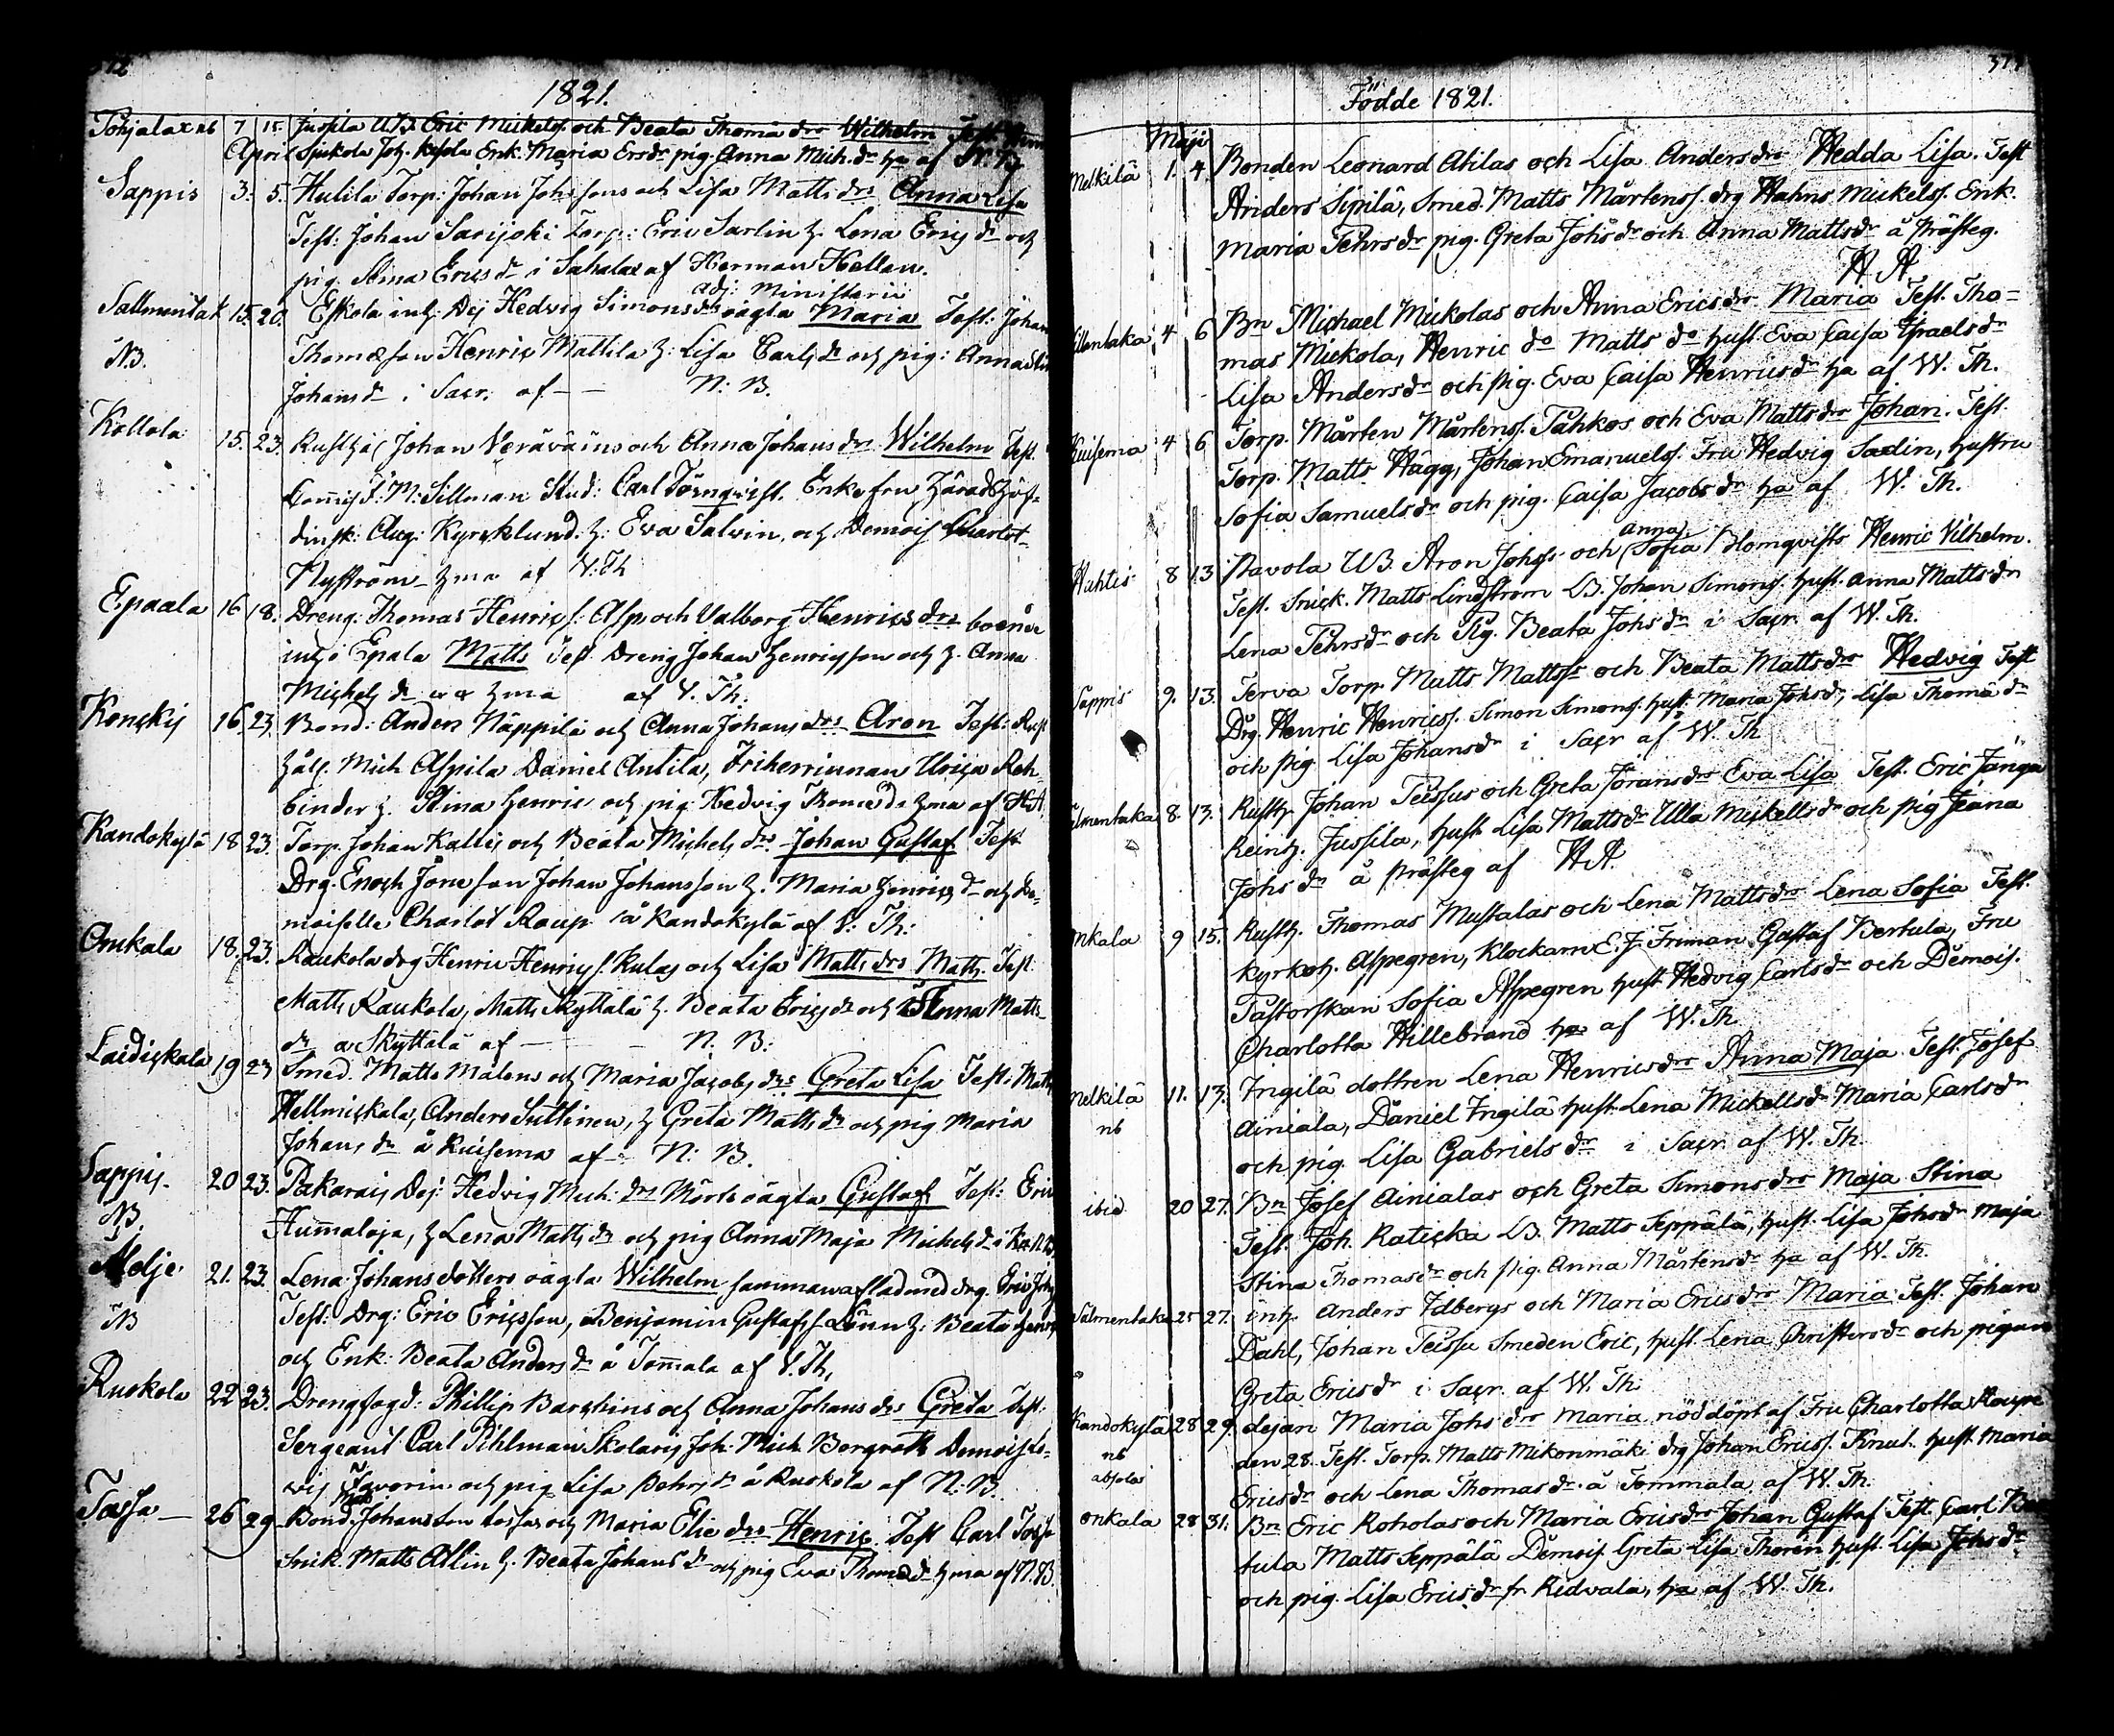 1821.
Tohjalax nb 7 15 Jussila U.B. Eric Mickels. och Beata Thomæ drs Wilhelm Test.
April Sjukola Joh. Enk. Maria Ersdr pig. Anna Mich. dr ha af
Sappis 3. 5. Hulila Torp: Johan Johssons och Lisa Matts drs Anna Lisa
Test: Johan Sarijoki Torp: Eric Sarlin h. Lena Erics dr och
pig. Stina Erics dr i Sahalax af Herman Hellen.
adj: Ministerii
Sallmentak 15. 20. Eskola inh. Dej Hedvig Simons drs oägta Maria Test: Johan
NB. Thomæson Henric Mattila h: Lisa Carls dr och pig: Anna
Johans dr i Sacr. af — N: B.
Kollola 15. 23. Rusth: Johan Veräväins och Anna Johans drs Wilhelm Test.
Commiss: M: Sillman Stud: Carl Törnqvist. Enkefru Häradshöf-
dinsk: Aug: Kyrcklund. h: Eva Salvin, och Demois Charlot-
Nyström hma af V: Th
Epaala 16 18. Dreng: Thomas Henrics: Asp och Valborg Henrics drs boende
inh: i Epala Matts Test Dreng Johan Henricsson och h. Anna
Michels dr hma af V. Th.
Konckis 16 23. Bond: Anders Näppilä och Anna Johans drs Aron Test:
håll. Mich Aspila Daniel Antila, Friherrinnan Ulrica Reh-
binder h. Stina Henric och pig Hedvig Thomæ dr hma af H.A.
Kandokylä 18 23. Torp. Johan Kallis och Beata Michels drs Johan Gustaf Test
Drg. Enoch Jöransson Johan Johansson h. Maria Henrics dr och De-
moiselle Charlot Roup å Kandokylä af V: Th:
Onkala 18. 23. Raukola drg Henric Henrics: Kulas och Lisa Matts drs Matts. Test
Matts Raukola, Matts Skyttälä h. Beata Erics dr och Anna Matts-
dr a Skyttälä af — N. B:
Laidickala 19 23 Smed. Matts Malens och Maria Jacobs drs Greta Lisa Test: Matts
Hellmickala, Anders Suttinen, h Greta Matts dr och pig Maria
Johans dr å Kuisema af N: B.
Sappis 20 23. Pakarais Dej: Hedvig Mich: drs Mörts oägta Gustaf Test: Eric
NB. Humaloja, h Lena Matts dr och pig Anna Maja Michels dr i
Molje. 21. 23. Lena Johansdotters oägta Wilhelm sammanaflad med drg. Eric Johs
NB Test: Drg: Eric Ericsson, Benjamin Gustafs: Lönn h: Beata Henrics
och Enk: Beata Anders dr å Tommala af V. Th,
Ruokola 22 23. Drengfogd: Phillip Barchins och Anna Johans drs Greta Test:
Sergeant Carl Pihlman Skolaris Joh. Mich Borgroth Demois Lo-
vis Favorin och pig Lisa Pehrs dr å Ruokola af N: B.
Tassa — 26 29 Bond. Johansson Tassas och Maria Elie drs Henric Test Carl
Snick. Matts Allin h. Beata Johans dr och pig Eva Thomæ dr hma af N.B.
Födde 1821.
Maji
Melkilä 1. 4. Bonden Leonard Atilas och Lisa Anders drs Hedda Lisa. Test
Anders Sipilä, Smed. Matts Mårtens. drg Hahns Mickels. Enk.
Maria Pehrs dr pig. Greta Johs dr och Anna Matts dr å Prästeg.
H. A.
4 6 Bn Michael Mickolas och Anna Erics drs Maria Test. Tho=
mas Mickola, Henric do Matts do hust Eva Caisa Israels dr
Lisa Anders dr och pig. Eva Caisa Henrics dr ha af W. Th.
Kuisema 4 6 Torp. Mårten Mårtens. Tåhkos och Eva Matts drs Johan. Test.
Torp. Matts Hägg, Johan Emanuels. Fru Hedvig Sadin, hustru
Sofia Samuels dr och pig. Caisa Jacobs dr ha af W. Th.
Huhtis 8 13 Pavola U.B. Aron Johs: och Anna Sofia Blomqvists Henric Vilhelm.
Test. Snick. Matts Lindström U.B. Johan Simons. hust. Anna Matts dr
Lena Pehrs dr och Pig. Beata Johs dr i Sacr. af W. Th.
Sappis 9. 13. Terva Torp. Matts Matts: och Beata Matts drs Hedvig Test
Drg. Henric Henrics. Simon Simons. hust. Maria Johs dr, Lisa Thomæ dr
och pig Lisa Johans dr i Sacr af W. Th
Salmentaka 8. 13. Rusth. Johan Teissus och Greta Jörans drs Eva Lisa Test. Eric
Reinh. Jussila, hust Lisa Matts dr Ulla Mickells dr och pig Jeana
Johs dr å Prästeg af H.A.
Onkala 9 15. Rusth. Thomas Mustalas och Lena Matts drs Lena Sofia Test.
Kyrkoh. Aspegren, Klockarn E. J. Friman Gustaf Bertula, Fru
Pastorskan Sofia Aspegren hust Hedvig Carls dr och Demois.
Charlotta Hillebrand ha af W. Th
Melkilä 11. 13. Ingilä dottren Lena Henrics drs Anna Maja Test. Josef
nb Ainiala, Daniel Ingilä hust. Lena Mickells dr Maria Carls dr
och pig. Lisa Gabriels dr i Sacr af W. Th.
ibid 20 27. Bn Josef Ainialas och Greta Simons drs Maja Stina
Test. Joh. Raticka U.B. Matts Seppälä, hust. Lisa Johs dr Maja
Stina Thomas dr och pig. Anna Mårtens dr ha af W. Th.
Salmentaka 25 27. inh. Anders Idbergs och Maria Erics drs Maria Test. Johan
Dahl, Johan Teissu Smeden Eric, hust. Lena Christers dr och pigan
Greta Erics dr i Sacr. af W. Th.
Kandokylä 28 29 dejan Maria Johs drs Maria nöddöpt af Fru Charlotta
nb den 28. Test. Torp. Matts Nikonmäki drg Johan Erics. Knut. hust Maria
absolas Erics dr och Lena Thomas dr å Tommala af W. Th.
Onkala 28 31. Bn Eric Roholas och Maria Erics drs Johan Gustaf Test. Carl Ber
tula Matts Seppälä Demois. Greta Lisa Thoren hust. Lisa Johs dr
och pig. Lisa Erics dr fr Ridvala, ha af W. Th.